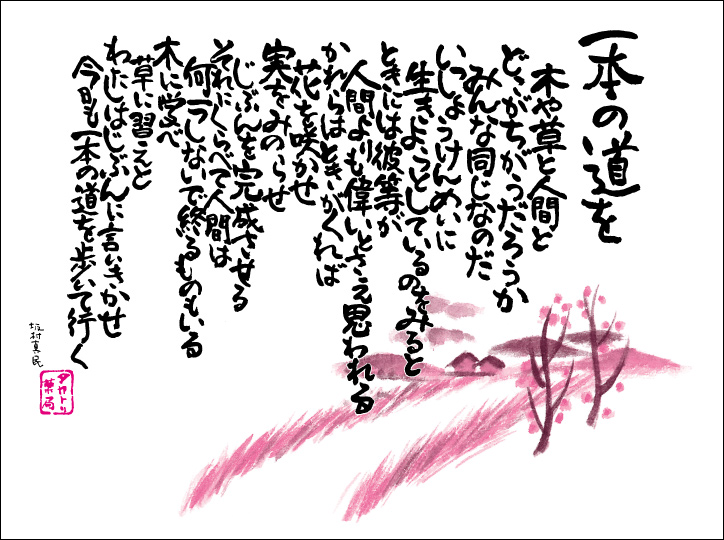 一本の道を
木や草と人間と
どこがちがうだろうか
みんな同じなのだ
いっしょうけんめいに
生きようとしているのをみると
ときには彼等が
人間よりも偉いとさえ思われる
かれらはときがくれば
花を咲かせ
実をみのらせ
じぶんを完成させる
それにくらべて人間は
何一つしないで終るものもいる
木に学べ
草に習えと
わたしはじぶんに言いきかせ
今日も一本の道を歩いて行く
坂村真民
タカトリ
薬局